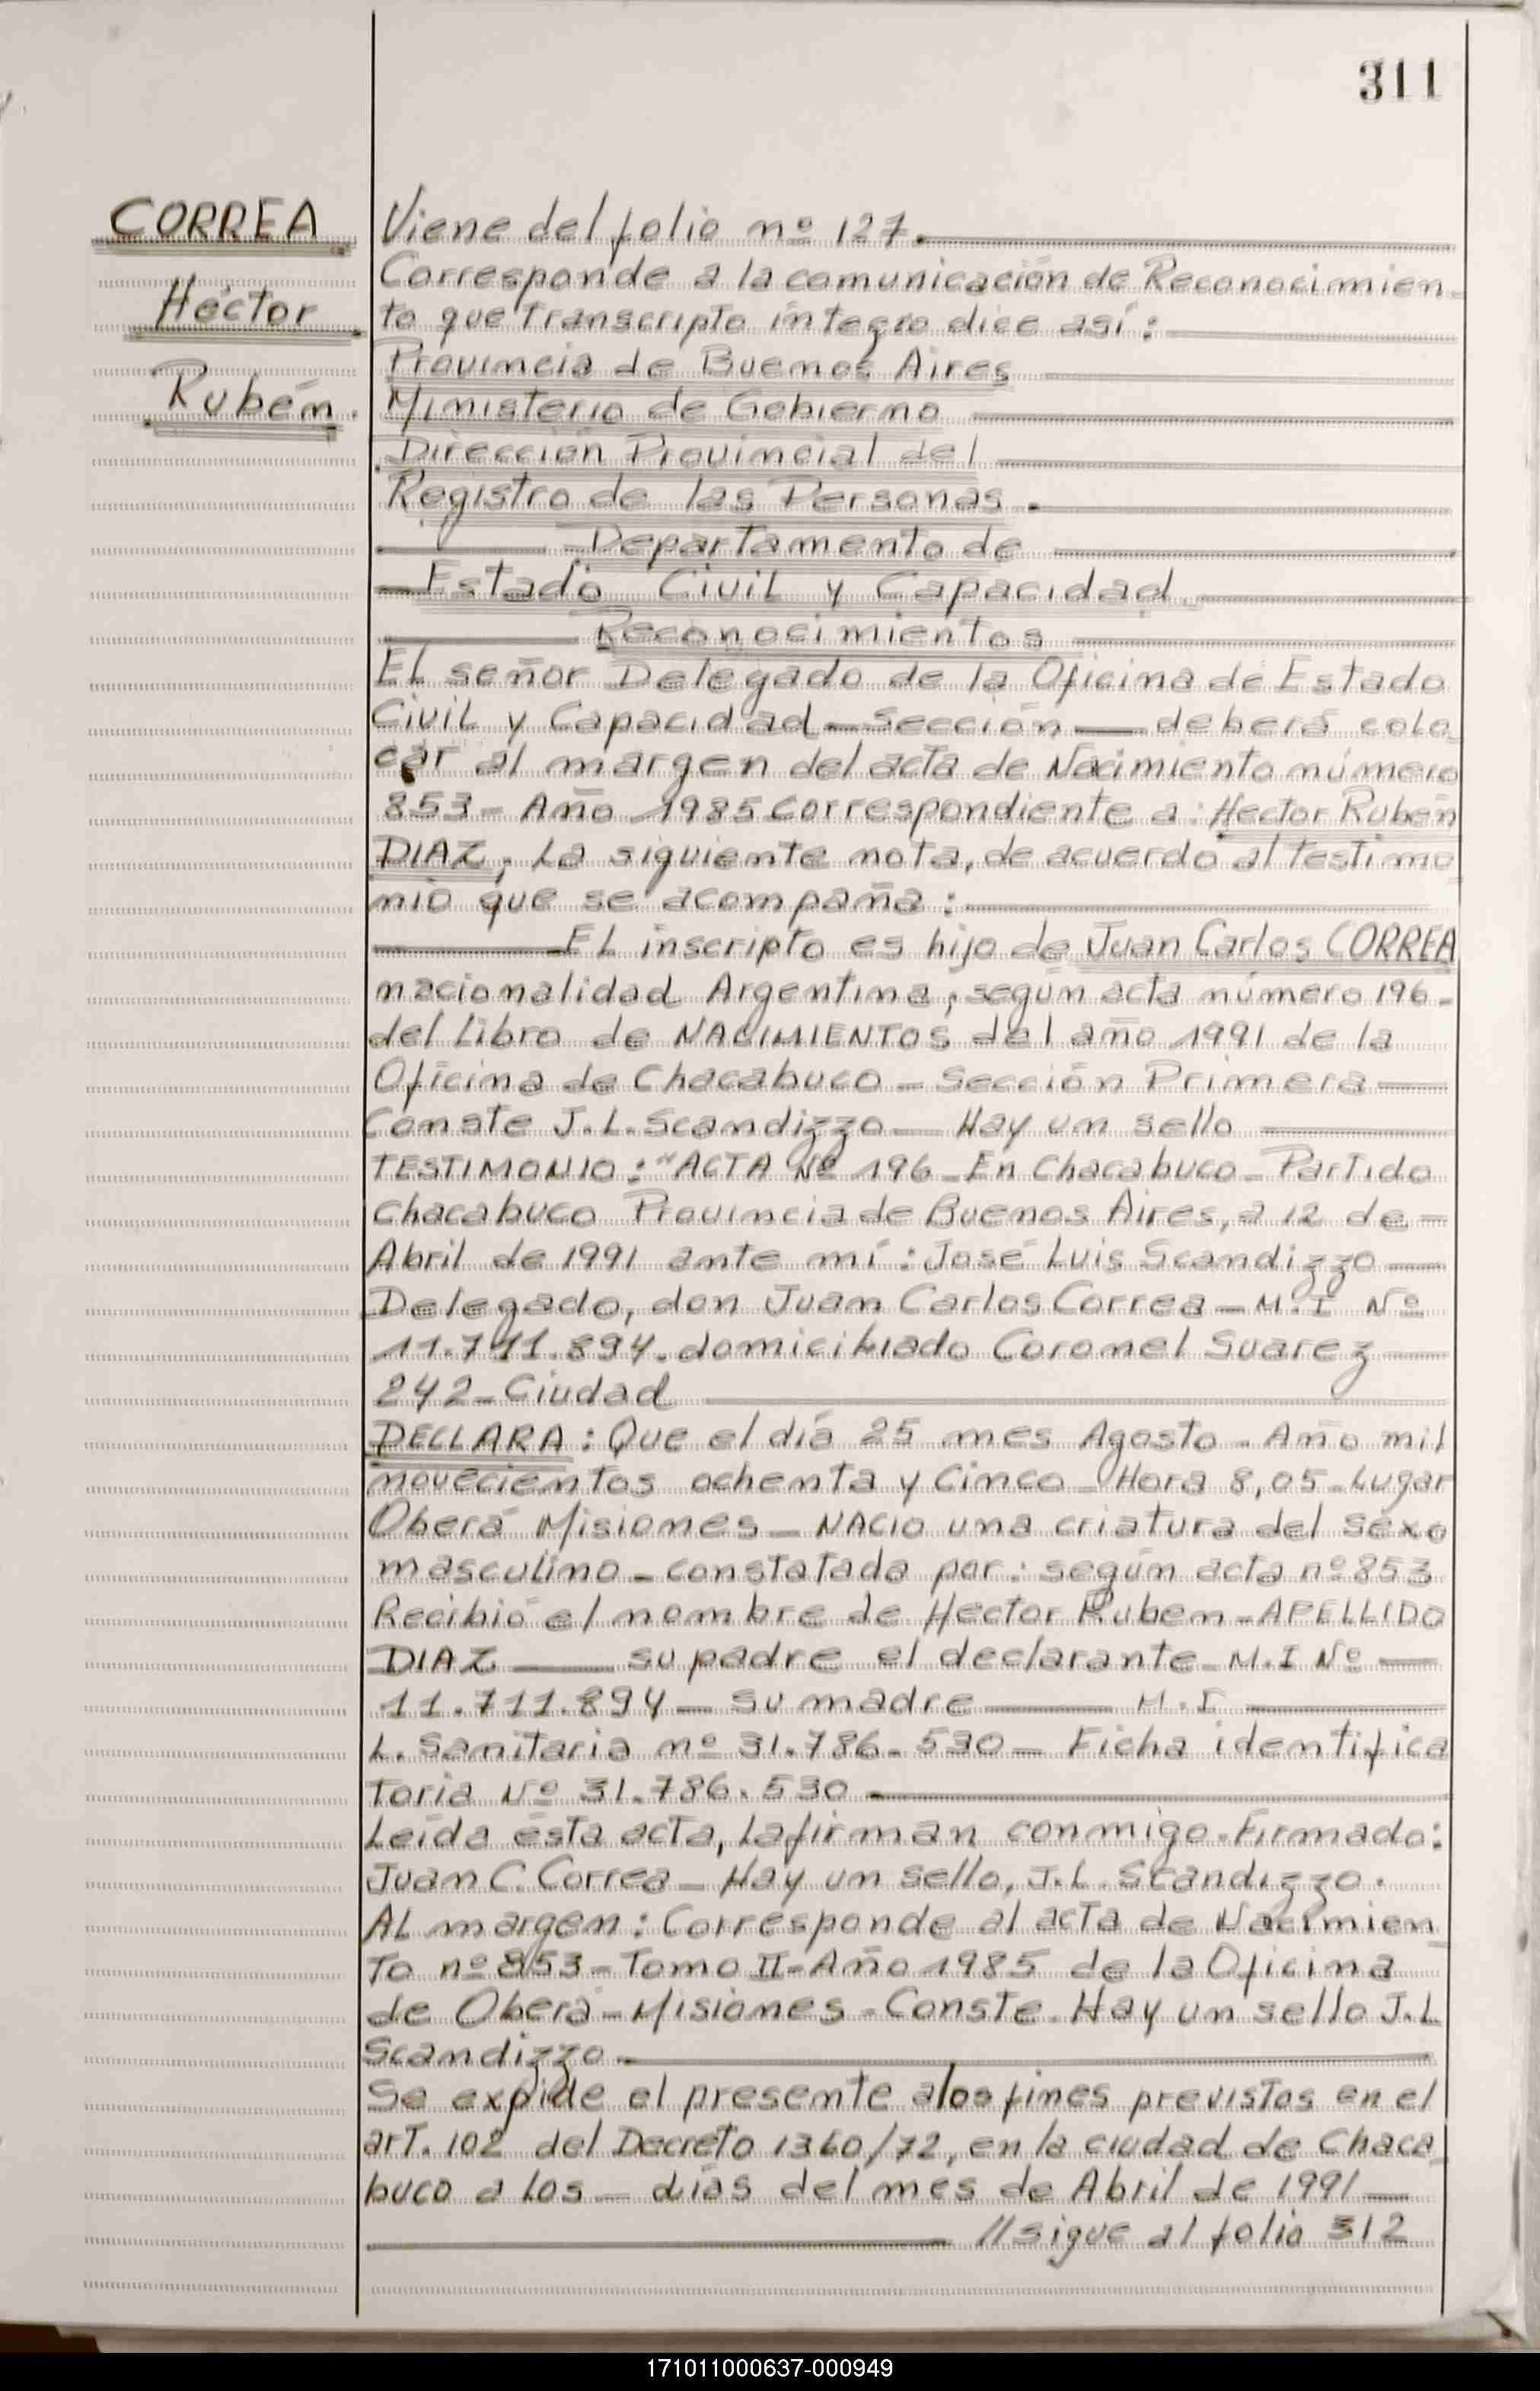 311
CORREA
Héctor
Rubén.
Viene del folio nº 127.
Corresponde a la comunicación de Reconocimien
to que Transcripto integro dice así:
Provincia de Buenos Aires
Ministerio de Gobierno
Dirección Provincial del
Registro de las Personas.
Departamento de
Estado Civil y Capacidad
Reconocimientos
El señor Delegado de la Oficina de Estado
Civil y Capacidad — Sección — deberá colo
car al margen del acta de Nacimiento número
853 - Año 1985 correspondiente a: Hector Rubén
DIAZ, La siguiente nota, de acuerdo al Testimo
nio que se acompaña:
EL inscripto es hijo de Juan Carlos CORREA
nacionalidad Argentina, según acta número 196-
del Libro de NACIMIENTOS del año 1991 de la
Oficina de Chacabuco - Sección Primera —
Conste J.L. Scandizzo — Hay un sello
TESTIMONIO: "ACTA Nº 196 - En Chacabuco - Partido
Chacabuco Provincia de Buenos Aires, a 12 de -
Abril de 1991 ante mí: José Luis Scandizzo —
Delegado, don Juan Carlos Correa - M.I Nº
11.711.894. domiciliado Coronel Suarez —
242 - Ciudad
DECLARA: Que el día 25 mes Agosto - Año mil
novecientos ochenta y Cinco - Hora 8,05 - Lugar
Oberá Misiones - NACIO una criatura del sexo
masculino - constatada por: según acta nº 853
Recibió el nombre de Hector Ruben - APELLIDO
DIAZ — su padre el declarante - M.I Nº —
11.711.894 - su madre — M.I —
L. Sanitaria nº 31.786.530 - Ficha identifica
Toria Nº 31.786.530
Leída esta acta, la firman conmigo. Firmado:
Juan C. Correa - Hay un sello, J.L. Scandizzo.
AL margen: Corresponde al acta de Nacimien
To nº 853 - Tomo II - Año 1985 de la Oficina
de Oberá - Misiones - Conste. Hay un sello J.L
Scandizzo.
Se expide el presente a los fines previstos en el
arT. 102 del Decreto 1360/72, en la ciudad de Chaca
buco a Los — días del mes de Abril de 1991 —
//sigue al folio 312
171011000637-000949